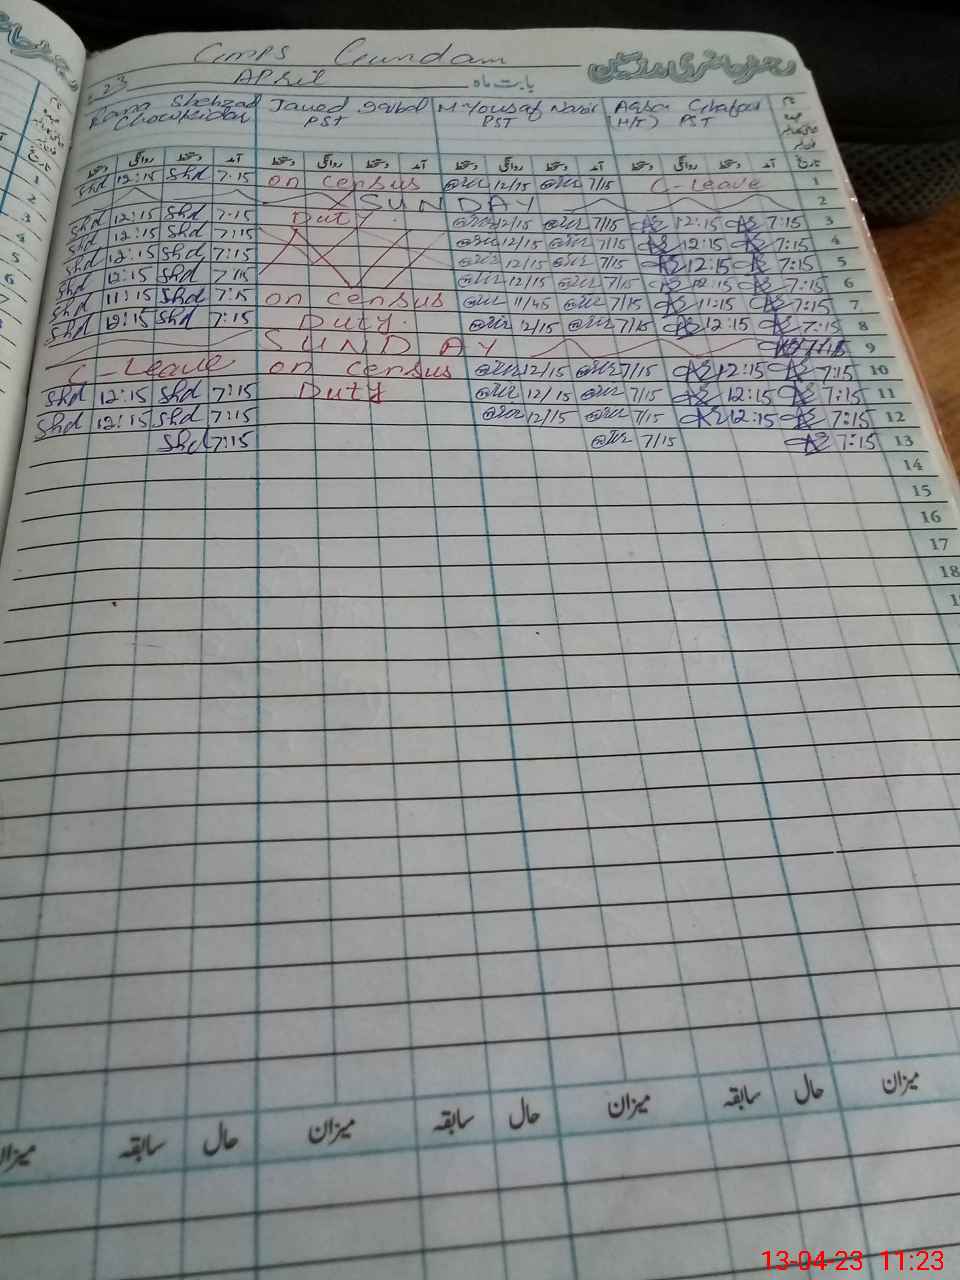 GMPS Gundam
23 APRIL بابت ماہ
Rana Shehzad Javed Iqbal M. Yousaf Nasir Aqsa Ghafoor
Chowkidar PST PST (H/T) PST
دستخط روانگی دستخط آمد دستخط روانگی دستخط آمد دستخط روانگی دستخط آمد دستخط روانگی دستخط آمد تاریخ
Shd 12:15 Shd 7:15 on census 12/15 7/15 C-Leave 1
SUNDAY 2
Shd 12:15 Shd 7:15 Duty. 12/15 7/15 12:15 7:15 3
Shd 12:15 Shd 7:15 12/15 7/15 12:15 7:15 4
Shd 12:15 Shd 7:15 12/15 7/15 12:15 7:15 5
Shd 12:15 Shd 7:15 12/15 7/15 12:15 7:15 6
Shd 11:15 Shd 7:15 on census 11/45 7/15 11:15 7:15 7
Shd 12:15 Shd 7:15 Duty. 12/15 7/15 12:15 7:15 8
SUNDAY 9
C-Leave on census 12/15 7/15 12:15 7:15 10
Shd 12:15 Shd 7:15 Duty 12/15 7/15 12:15 7:15 11
Shd 12:15 Shd 7:15 12/15 7/15 12:15 7:15 12
Shd 7:15 7/15 7:15 13
14
15
16
17
18
میزان سابقہ حال میزان سابقہ حال میزان سابقہ حال میزان
13-04-23 11:23